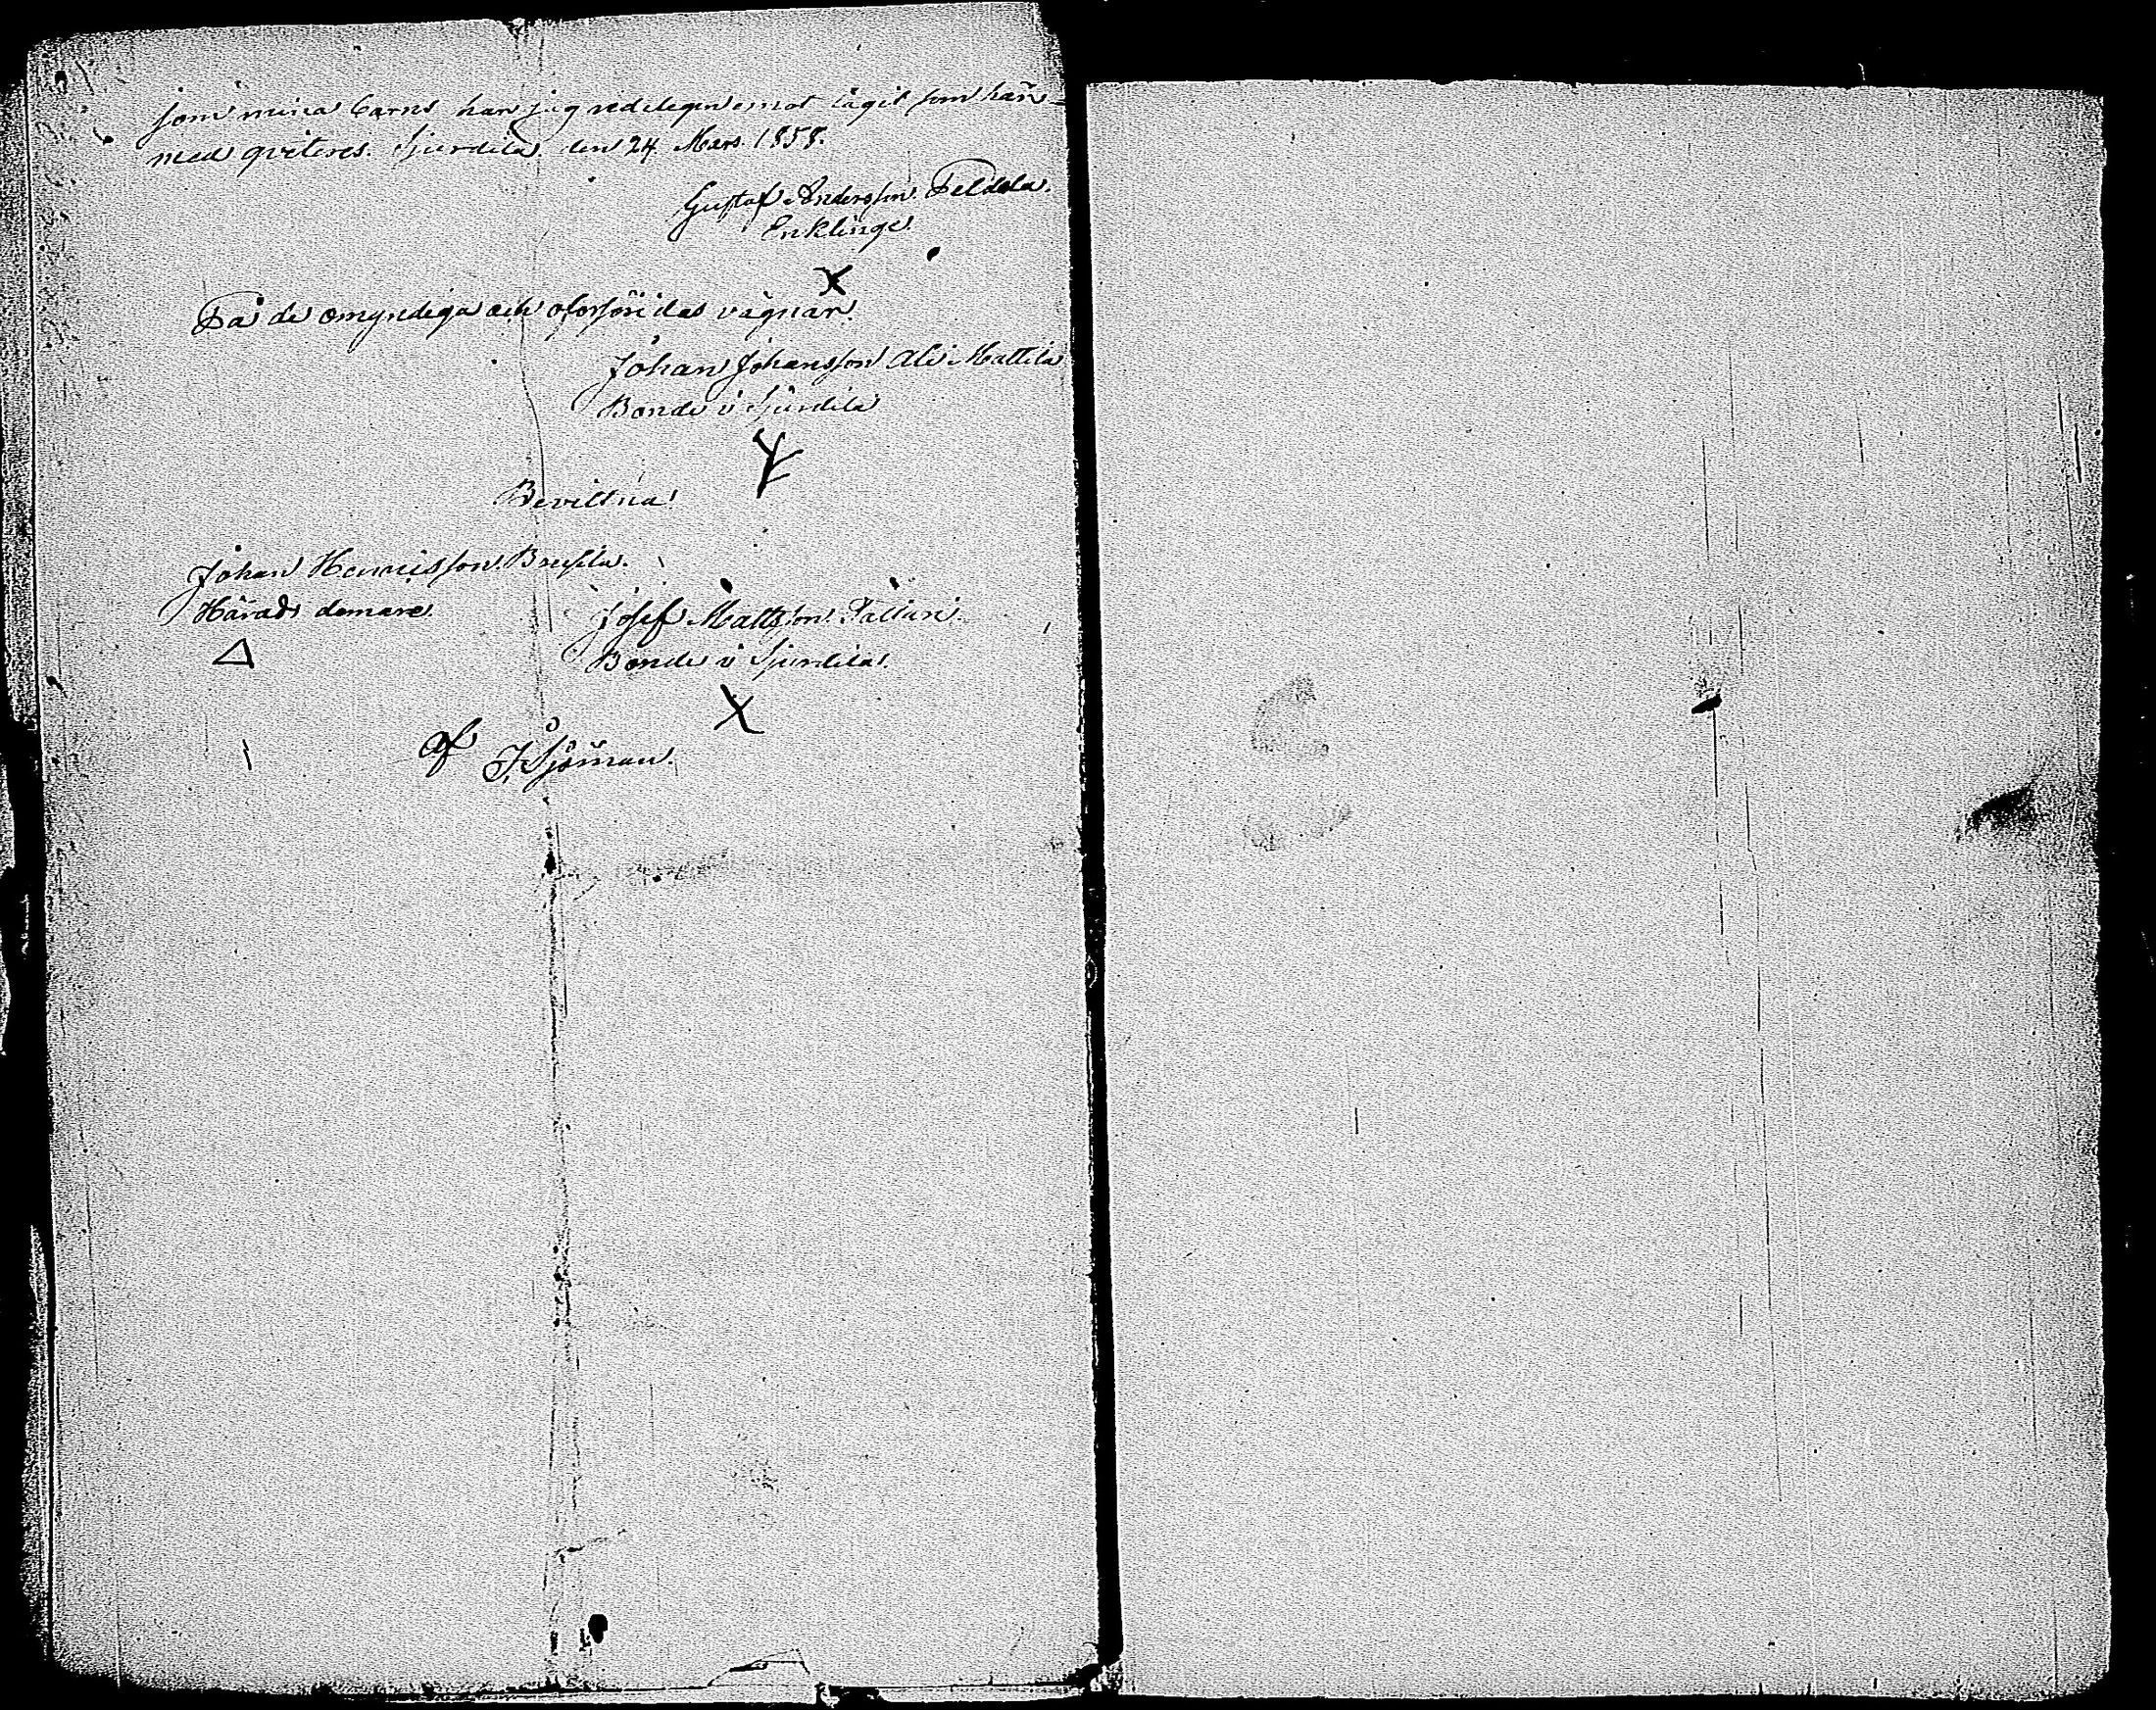 som mina barns har jag redeligen emot tagit som här-
med qviteres. Sjundila den 24 Mars. 1858.
Gustaf Andersson Peldola.
Enklinge.
X
På de omyndiga och oforsöridas vägnar.
Johan Johansson Ali Mattila
Bonde i Sjundila
Bevittna!
Johan Hennisson
Härads domare.
Josef Mattsson
Bonde i Sjundila.
X
af
J. Sjöman.